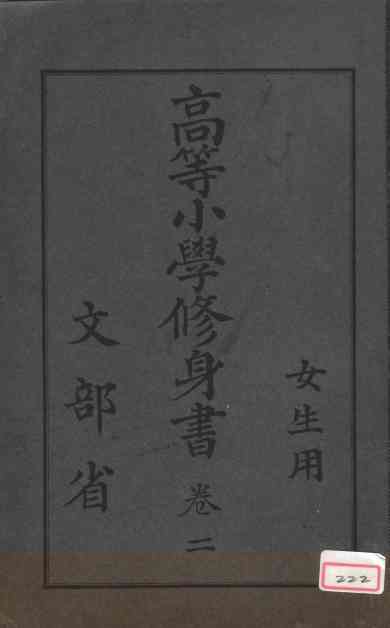 女生用
高等小學修身書 卷二
文部省
222